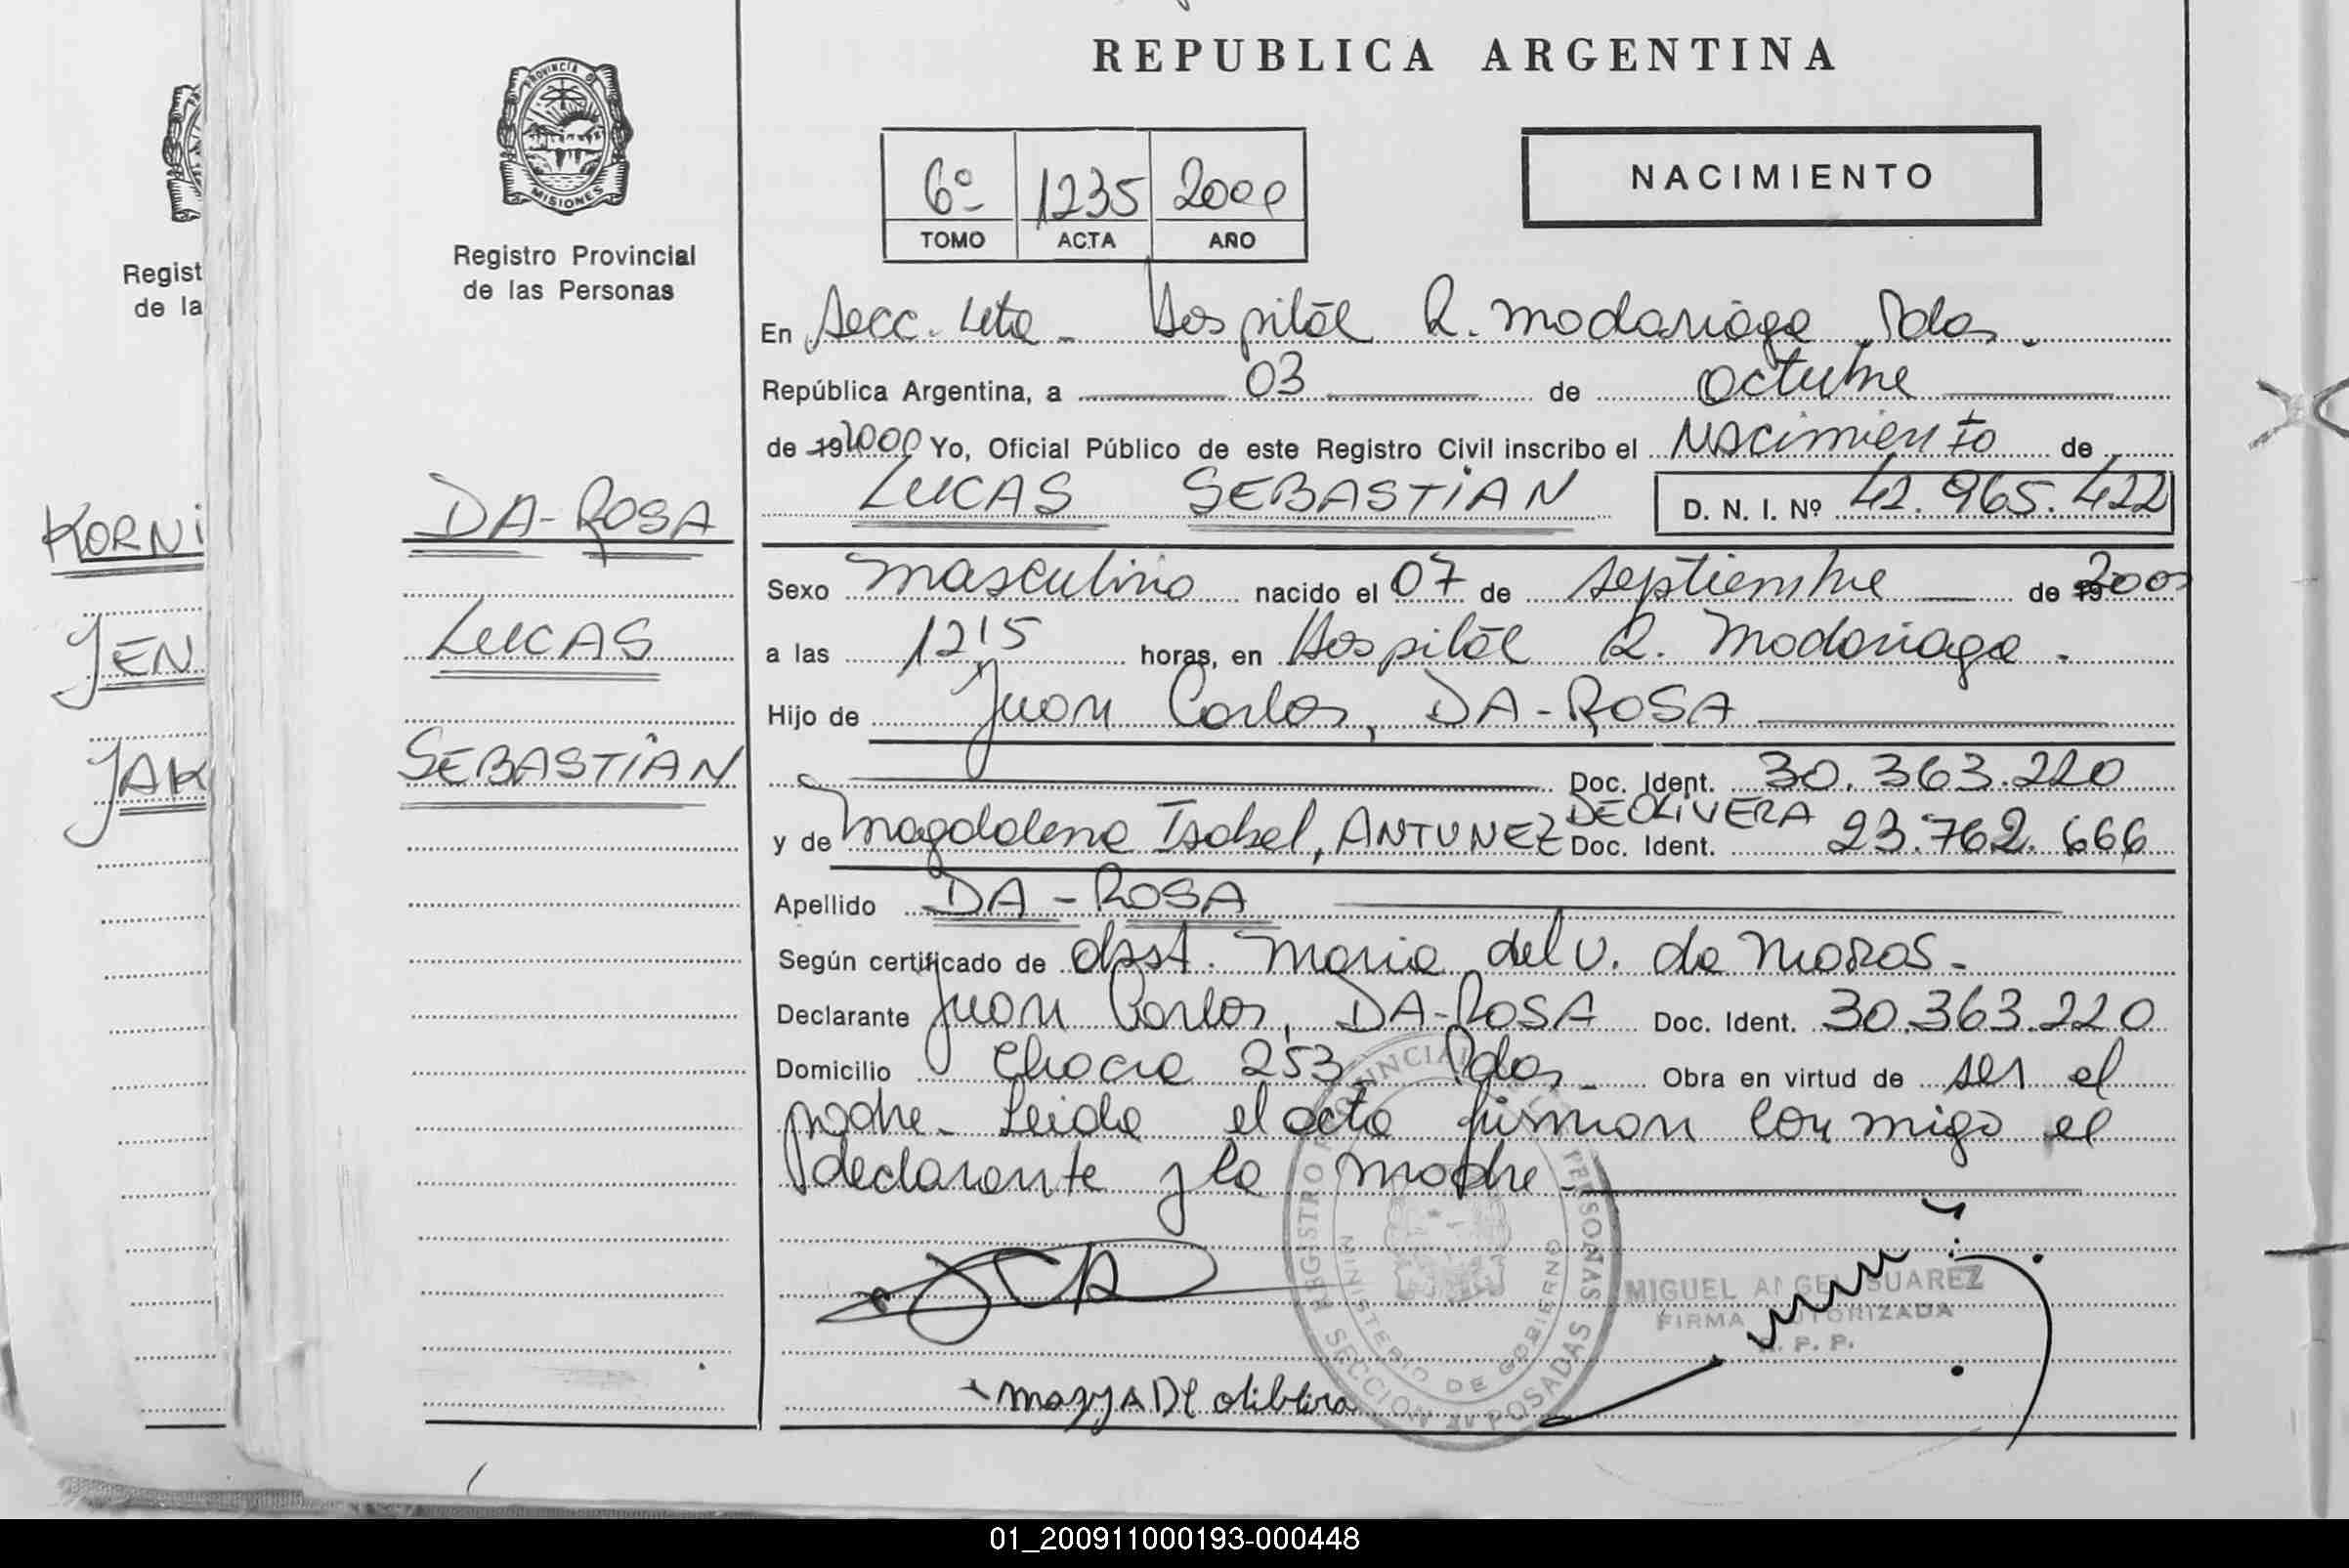 REPUBLICA ARGENTINA
PROVINCIA DE
MISIONES
Registro Provincial
de las Personas
Regist
de la
6º 1235 2000
TOMO ACTA AÑO
NACIMIENTO
En Secc. 4ta - Hospital R. Madariaga Pdas.
República Argentina, a 03 de octubre
de 192000 Yo, Oficial Público de este Registro Civil inscribo el Nacimiento de
LUCAS SEBASTIAN D. N. I. Nº 42.965.422
KORNI
JEN
JAK
DA-ROSA
LUCAS
SEBASTIAN
Sexo masculino nacido el 07 de septiembre de 2000
a las 1215 horas, en Hospital R. Madariaga.
Hijo de Juan Carlos, DA-ROSA
Doc. Ident. 30.363.220
y de Magdalena Isabel, ANTUNEZ DEOLIVERA Doc. Ident. 23.762.666
Apellido DA-ROSA
Según certificado de obst. Maria del V. de
Declarante Juan Carlos, DA-ROSA Doc. Ident. 30.363.220
Domicilio 253 Pdas - Obra en virtud de ser el
padre - Leida el acta firman conmigo el
declarante y la madre -
REGISTRO PROVINCIAL DE LAS PERSONAS
MINISTERIO DE GOBIERNO
SECCION 4ta POSADAS
MIGUEL ANGEL SUAREZ
FIRMA AUTORIZADA
R. P. P.
01_200911000193-000448